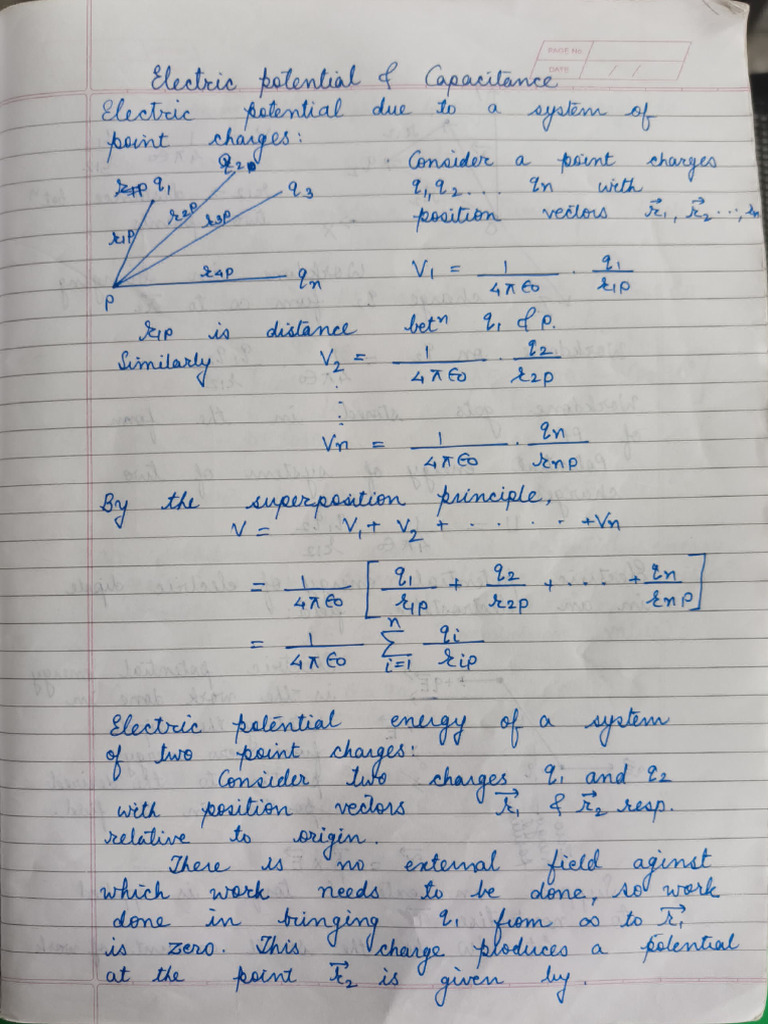 PAGE No.
DATE / /
Electric potential & Capacitance
Electric potential due to a system of
point charges:
q1 q2 q3
r1p r2p r3p
r4p qn
P
Consider a point charges
q1, q2 . . . qn with
position vectors r⃗1, r⃗2 ..., rn
V1 = 1/4π∈0 · q1/r1p
r1p is distance betⁿ q1 & p.
Similarly V2 = 1/4π∈0 · q2/r2p
⋮
Vn = 1/4π∈0 · qn/rnp
By the superposition principle,
V = V1 + V2 + . . . . . +Vn
= 1/4π∈0 [q1/r1p + q2/r2p + . . . + qn/rnp]
= 1/4π∈0 n∑i=1 qi/rip
Electric potential energy of a system
of two point charges:
Consider two charges q1 and q2
with position vectors r⃗1 & r⃗2 resp.
relative to origin.
There is no external field aginst
which work needs to be done, so work
done in bringing q1 from ∞ to r⃗1
is zero. This charge produces a potential
at the point r⃗2 is given by.